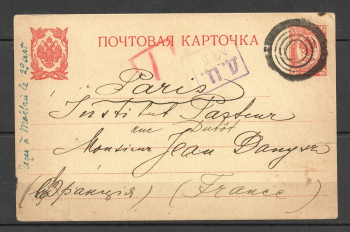 ПОЧТОВАЯ КАРТОЧКА
Paris
Institut Pasteur
rue Dutot
Monsieur Jean Danysz
(Франція) (France)
Reçu à Morlaix le